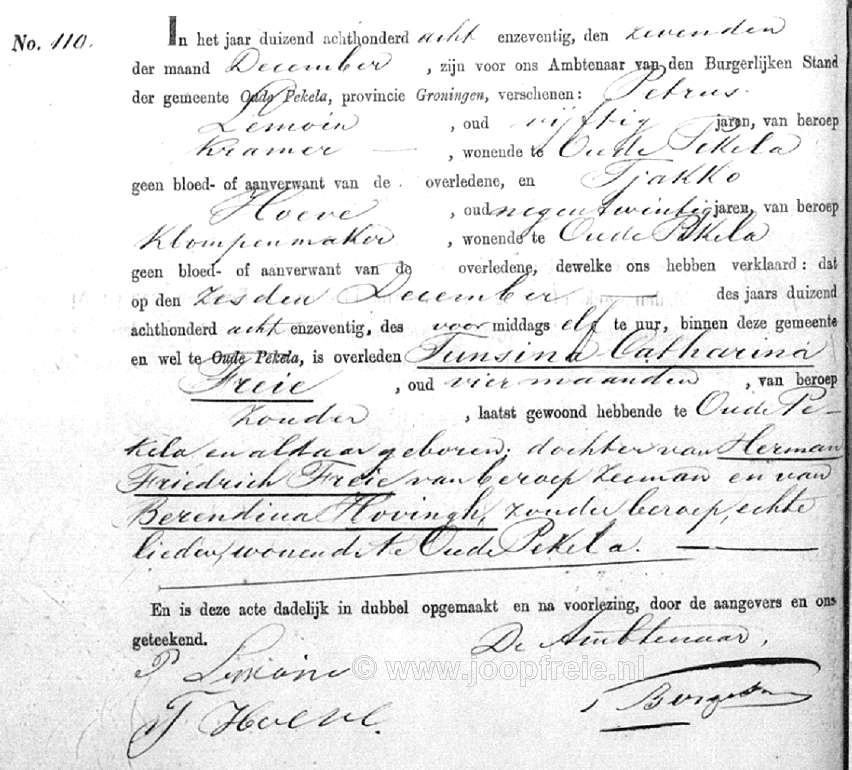 No. 110. In het jaar duizend achthonderd acht enzeventig, den zevenden
der maand December, zijn voor ons Ambtenaar van den Burgerlijken Stand
der gemeente Oude Pekela, provincie Groningen, verschenen: Petrus
Lemoin, oud vijftig jaren, van beroep
Kramer —, wonende te Oude Pekela
geen bloed- of aanverwant van de overledene, en Tjakko
Hoeve, oud negentwintig jaren, van beroep
Klompenmaker, wonende te Oude Pekela
geen bloed- of aanverwant van de overledene, dewelke ons hebben verklaard: dat
op den zesden December — des jaars duizend
achthonderd acht enzeventig, des voor middags elf te uur, binnen deze gemeente
en wel te Oude Pekela, is overleden Tunsina Catharina
Freie, oud vier maanden, van beroep
zonder, laatst gewoond hebbende te Oude Pe-
kela en aldaar geboren; dochter van Herman
Friedrich Freie van beroep Zeeman en van
Berendina Hovingh, zonder beroep, echte
lieden, wonende te Oude Pekela. —
En is deze acte dadelijk in dubbel opgemaakt en na voorlezing, door de aangevers en ons
geteekend. De Ambtenaar,
P Lemoine
© www.joopfreie.nl
T Hoeve.